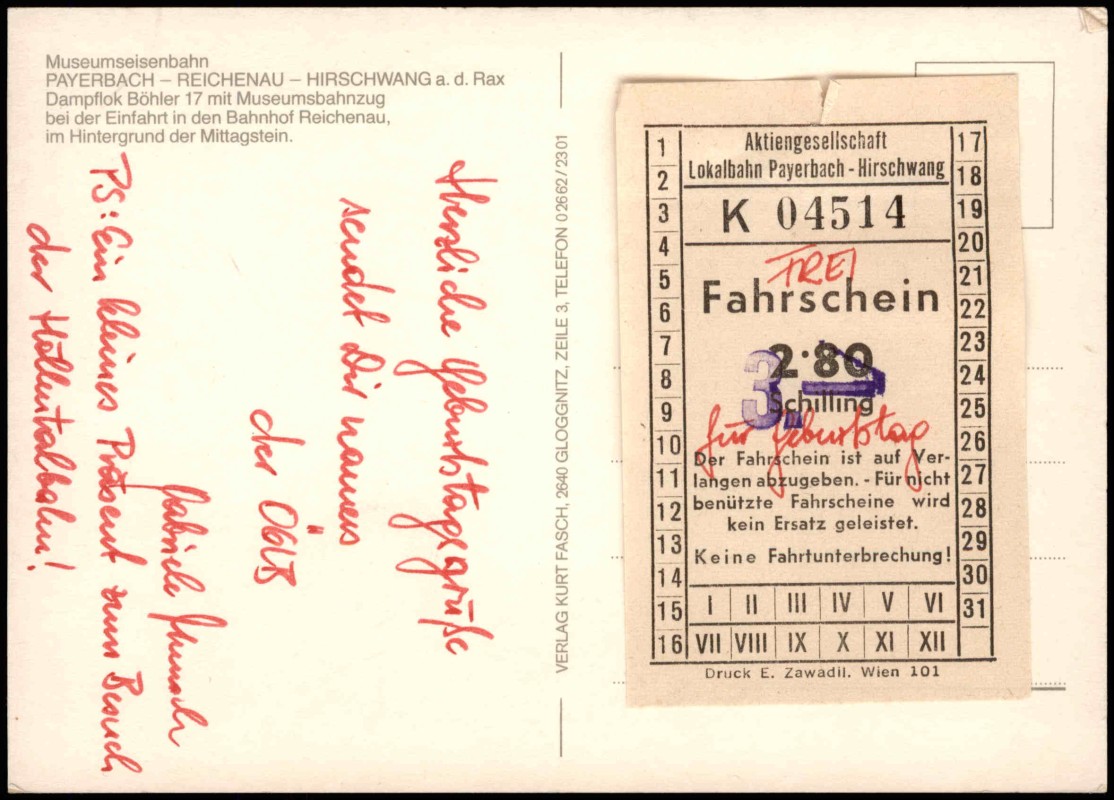 Museumseisenbahn
PAYERBACH – REICHENAU – HIRSCHWANG a. d. Rax
Dampflok Böhler 17 mit Museumsbahnzug
bei der Einfahrt in den Bahnhof Reichenau,
im Hintergrund der Mittagstein.
Herzliche Geburtstagsgrüße
sendet Dir namens
der ÖGLB
Gabriele
PS: Ein kleines Präsent zum Besuch
der Höllentalbahn!
VERLAG KURT FASCH, 2640 GLOGGNITZ, ZEILE 3, TELEFON 0 26 62 / 23 01
Aktiengesellschaft
Lokalbahn Payerbach - Hirschwang
K 04514
FREI
Fahrschein
2·80
3.
Schilling
für Geburtstag
Der Fahrschein ist auf Ver-
langen abzugeben. - Für nicht
benützte Fahrscheine wird
kein Ersatz geleistet.
Keine Fahrtunterbrechung!
1
2
3
4
5
6
7
8
9
10
11
12
13
14
15
16
17
18
19
20
21
22
23
24
25
26
27
28
29
30
31
I II III IV V VI
VII VIII IX X XI XII
Druck E. Zawadil. Wien 101